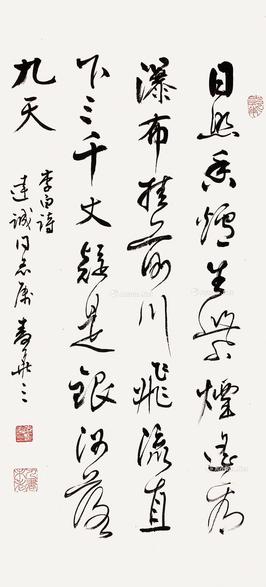 日照香炉生紫烟遥看
瀑布挂前川飞流直
下三千丈疑是银河落
九天
李白诗
建诚同志属